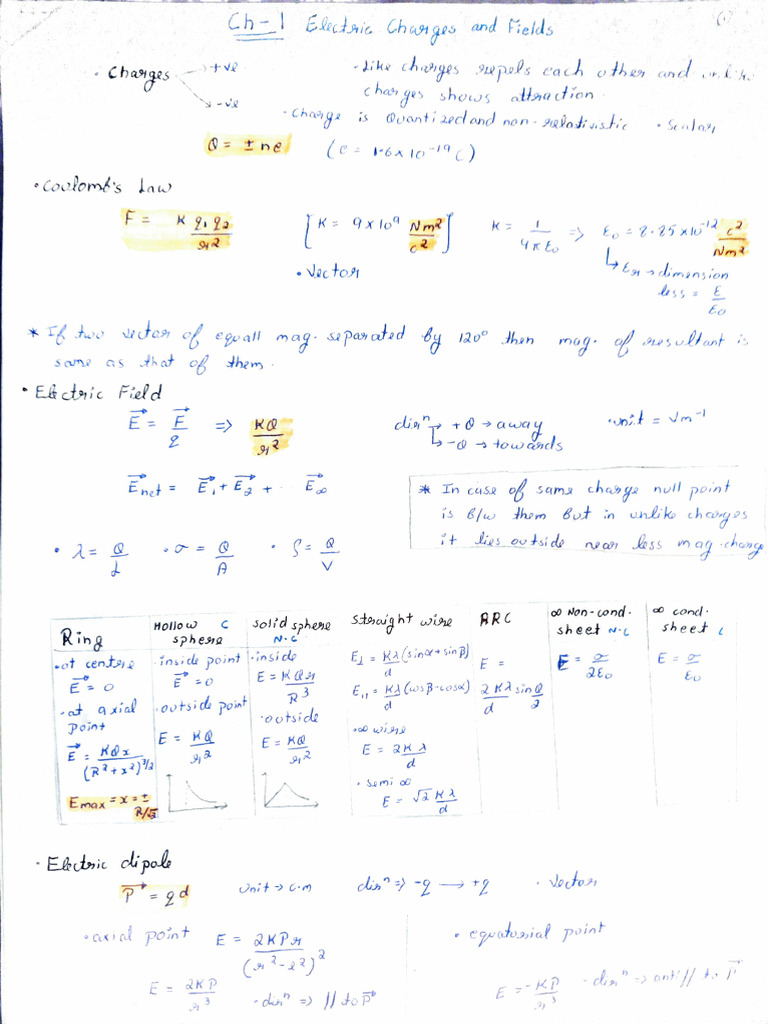 Ch-1 Electric Charges and Fields
• Charges → +ve
→ -ve
• Like charges repels each other and unlike
charges shows attraction.
• Charge is Quantized and non-relativistic • Scalar
Q = ± ne (e = 1.6 x 10⁻¹⁹ C)
• Coulomb's Law
F = K q₁ q₂ / r² [K = 9 x 10⁹ Nm² / c²] K = 1 / 4πε₀ => ε₀ = 8.85 x 10⁻¹² c² / Nm²
• Vector
↳ εr → dimension
less = ε / ε₀
* If two vector of equall mag. separated by 120° then mag. of resultant is
same as that of them.
• Electric Field
E⃗ = F⃗ / q => KQ / r² dirⁿ → +Q → away • unit = Vm⁻¹
↳ -Q → towards
E⃗net = E⃗₁ + E⃗₂ + ... E⃗∞
* In case of same charge null point
is b/w them But in unlike charges
it lies outside near less mag. charge
• λ = Q / L • σ = Q / A • ρ = Q / V
Ring
• at centre
E⃗ = 0
• at axial
point
E⃗ = KQx / (R² + x²)^3/2
Emax = x = ± R/√2
Hollow C
sphere
• inside point
E⃗ = 0
• outside point
E = KQ / r²
solid sphere
N.C
• inside
E = KQr / R³
• outside
E = KQ / r²
straight wire
E⊥ = Kλ / d (sinα + sinβ)
E∥ = Kλ / d (cosβ - cosα)
• ∞ wire
E = 2Kλ / d
• semi ∞
E = √2 Kλ / d
ARC
E =
2Kλ / d sin Q / 2
∞ Non-cond.
sheet N.C
E = σ / 2ε₀
∞ cond.
sheet C
E = σ / ε₀
• Electric dipole
P⃗ = qd unit → c.m dirⁿ => -q → +q • vector
• axial point E = 2KPr / (r² - l²)²
E = 2KP / r³ • dirⁿ => // to P⃗
• equatorial point
E = -KP / r³ • dirⁿ => anti // to P⃗